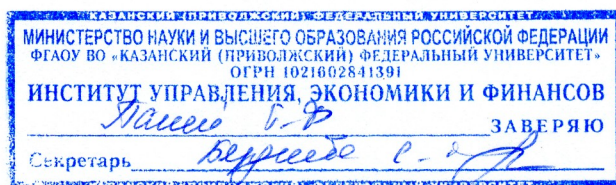 КАЗАНСКИЙ (ПРИВОЛЖСКИЙ) ФЕДЕРАЛЬНЫЙ УНИВЕРСИТЕТ
МИНИСТЕРСТВО НАУКИ И ВЫСШЕГО ОБРАЗОВАНИЯ РОССИЙСКОЙ ФЕДЕРАЦИИ
ФГАОУ ВО «КАЗАНСКИЙ (ПРИВОЛЖСКИЙ) ФЕДЕРАЛЬНЫЙ УНИВЕРСИТЕТ»
ОГРН 1021602841391
ИНСТИТУТ УПРАВЛЕНИЯ, ЭКОНОМИКИ И ФИНАНСОВ
ЗАВЕРЯЮ
Секретарь